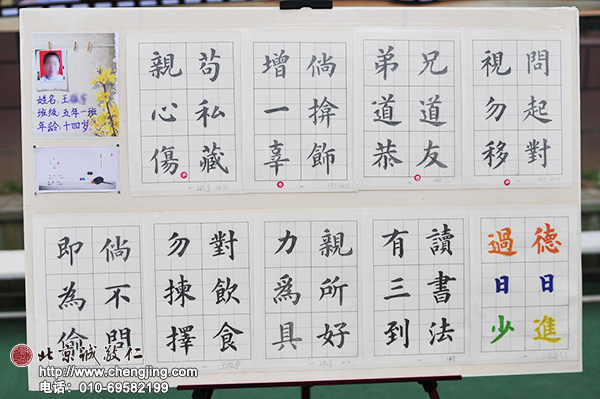 姓名:王
班级:五年一班
年龄:十四岁
問起對
視勿移
兄道友
弟道恭
倘揜飾
增一辜
苟私藏
親心傷
德日進
過日少
讀書法
有三到
親所好
力爲具
對飲食
勿揀擇
倘不問
即為偷
北京诚敬仁
http://www.chengjing.com
电话：010-69582199